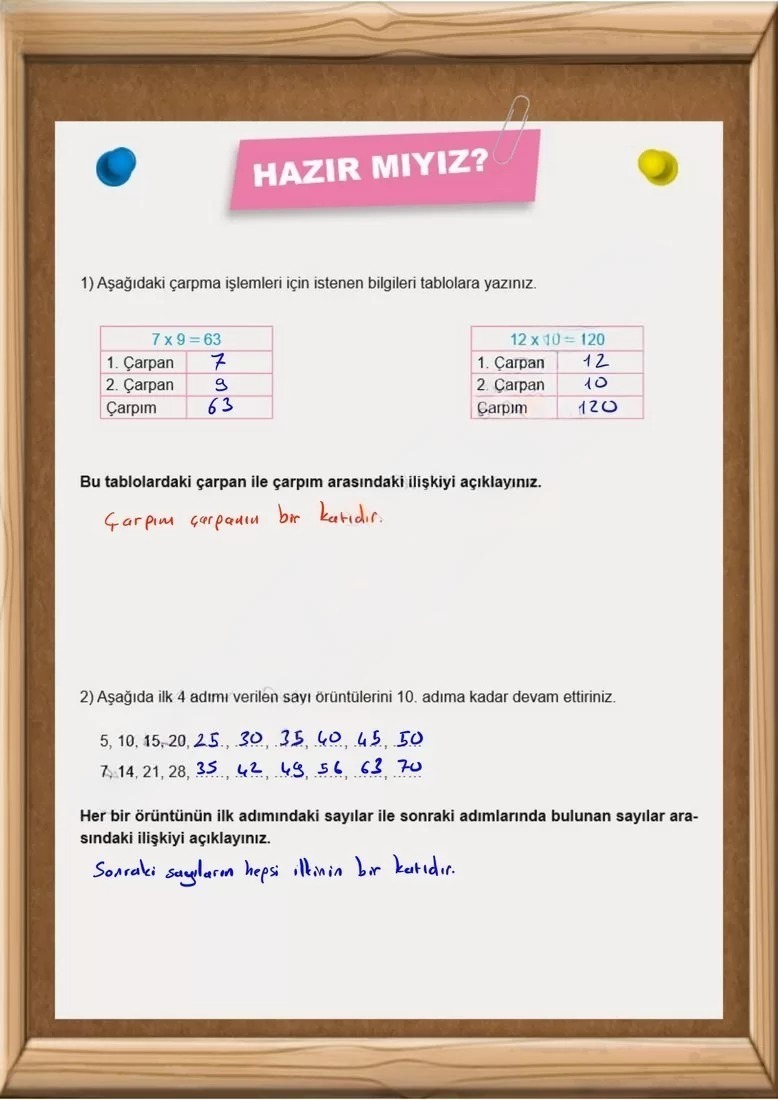 HAZIR MIYIZ?
1) Aşağıdaki çarpma işlemleri için istenen bilgileri tablolara yazınız.
7 x 9 = 63
1. Çarpan 7
2. Çarpan 9
Çarpım 63
12 x 10 = 120
1. Çarpan 12
2. Çarpan 10
Çarpım 120
Bu tablolardaki çarpan ile çarpım arasındaki ilişkiyi açıklayınız.
Çarpım çarpanın bir katıdır.
2) Aşağıda ilk 4 adımı verilen sayı örüntülerini 10. adıma kadar devam ettiriniz.
5, 10, 15, 20, 25, 30, 35, 40, 45, 50
7, 14, 21, 28, 35, 42, 49, 56, 63, 70
Her bir örüntünün ilk adımındaki sayılar ile sonraki adımlarında bulunan sayılar ara-
sındaki ilişkiyi açıklayınız.
Sonraki sayıların hepsi ilkinin bir katıdır.